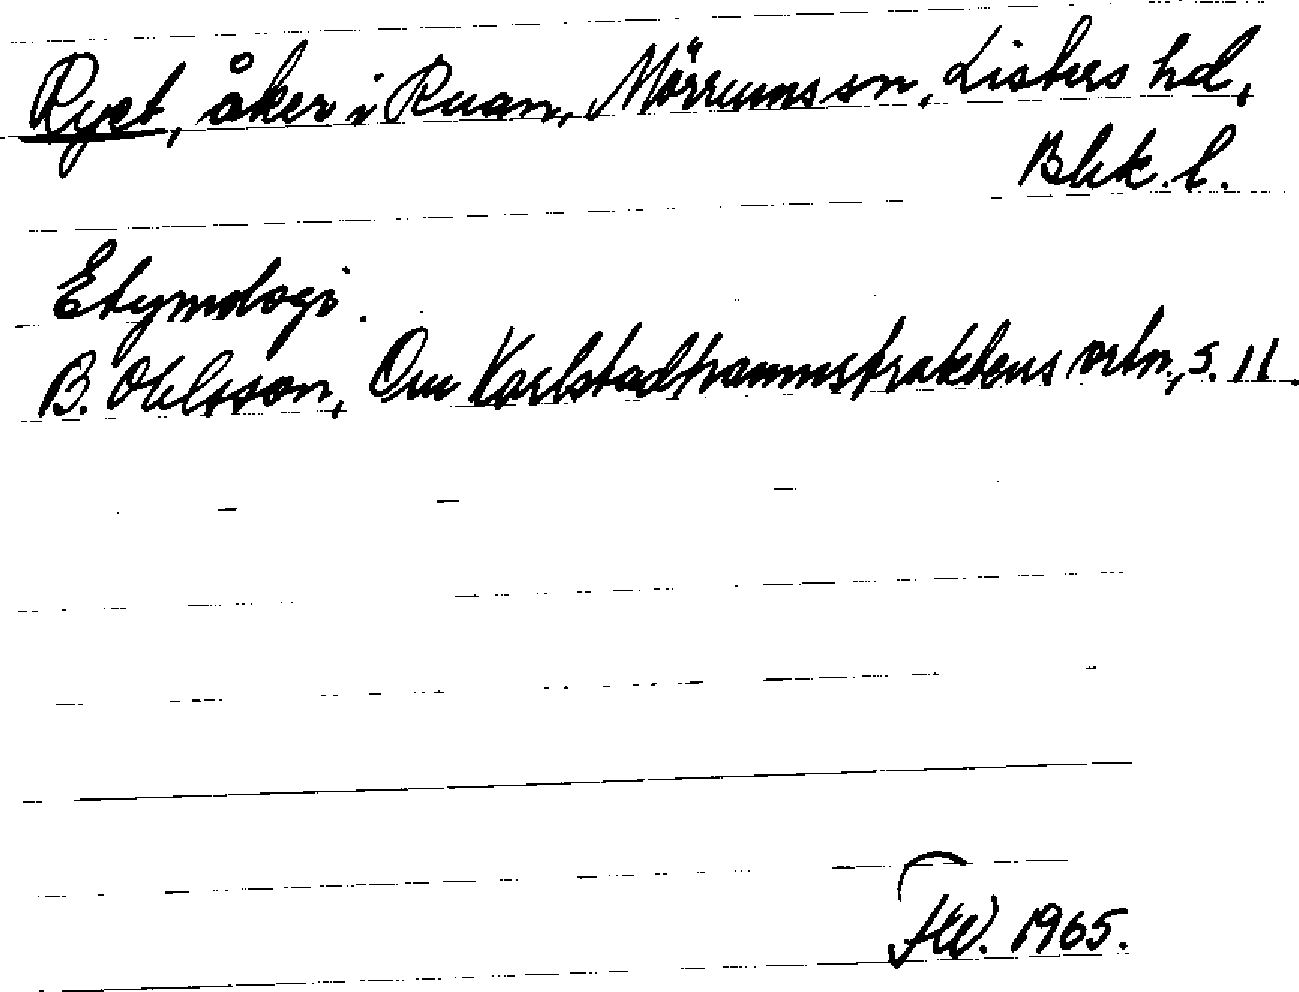 Ryet, åker i Ruan, Mörrums sn, Listers hd,
Blek. l.
Etymologi.
B. Ohlsson, Om Karlstadhamnstraktens ortn., s. 11.
1965.